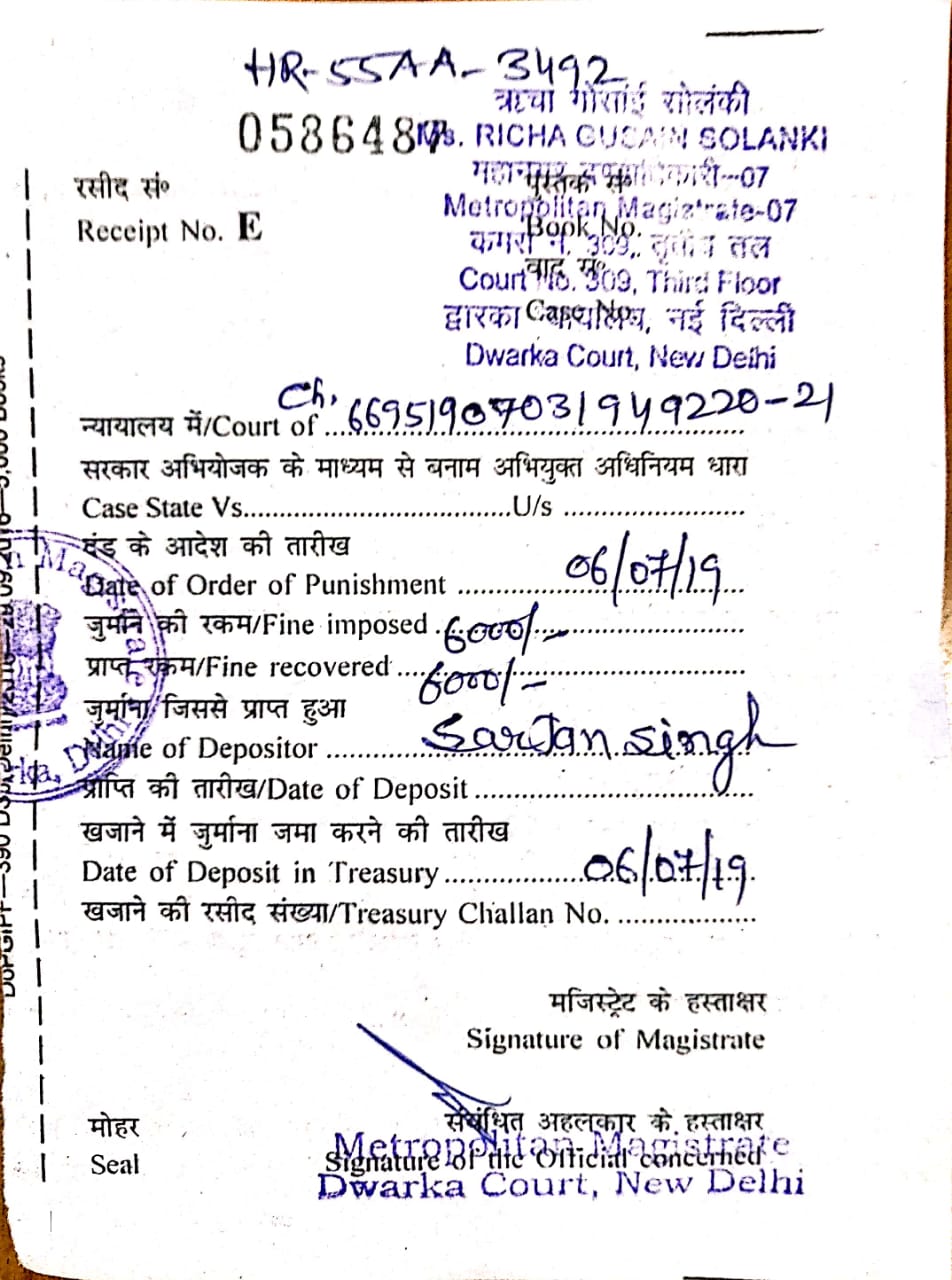 HR-55AA-3492
ऋचा गोसाईं सोलंकी
058648 Ms. RICHA GUSAIN SOLANKI
रसीद सं०
पुस्तक सं०
महानगर दण्डाधिकारी-07
Receipt No. E
Metropolitan Magistrate-07
Book No.
कमरा नं. 309, तृतीय तल
वाद सं०
Court No. 309, Third Floor
Case No.
द्वारका न्यायालय, नई दिल्ली
Dwarka Court, New Delhi
Ch.
न्यायालय में/Court of ...66951907031949220-21
सरकार अभियोजक के माध्यम से बनाम अभियुक्त अधिनियम धारा
Case State Vs.....................................U/s .........................
दंड के आदेश की तारीख
Date of Order of Punishment ........06/07/19
जुर्माने की रकम/Fine imposed .6000/-
प्राप्त रकम/Fine recovered ...6000/-
जुर्माना जिससे प्राप्त हुआ
Name of Depositor ............Sartan singh
प्राप्ति की तारीख/Date of Deposit ......................................
खजाने में जुर्माना जमा करने की तारीख
Date of Deposit in Treasury...................06/07/19.
खजाने की रसीद संख्या/Treasury Challan No. ...................
मजिस्ट्रेट के हस्ताक्षर
Signature of Magistrate
मोहर
संबंधित अहलकार के हस्ताक्षर
Metropolitan Magistrate
Seal
Signature of the Official concerned
Dwarka Court, New Delhi